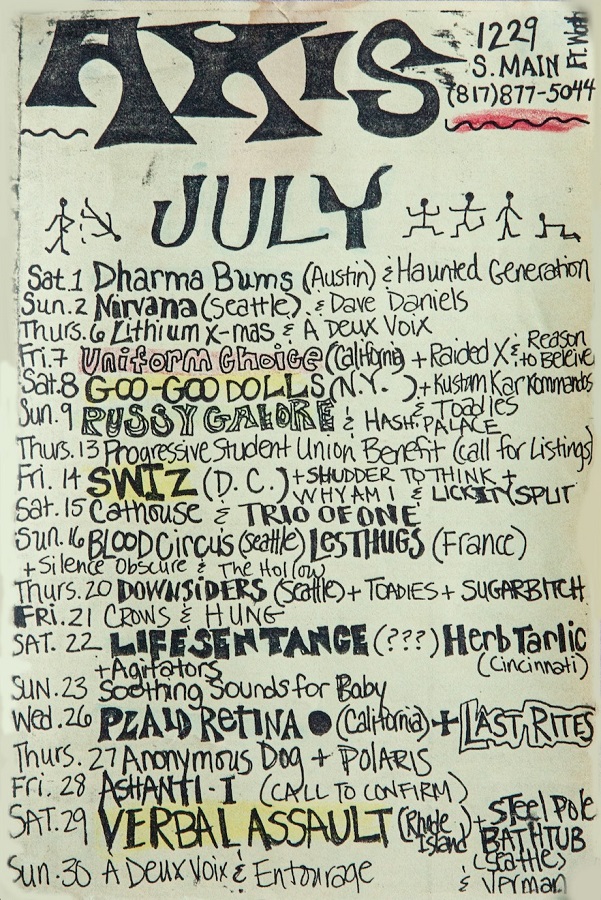 AXiS
1229
S. MAIN
Ft. Worth
(817)877-5044
JULY
Sat. 1 Dharma Bums (Austin) & Haunted Generation
Sun. 2 Nirvana (Seattle) & Dave Daniels
Thurs. 6 Lithium X-mas & À Deux Voix
Fri. 7 Uniform Choice (California) + Raided X & Reason
to Beleive
Sat. 8 GOO-GOO DOLLS (N.Y. ) + Kustom Kar Kommandos
Sun. 9 PUSSY GALORE & HASH PALACE & Toadies
Thurs. 13 Progressive Student Union Benefit (call for Listings)
Fri. 14 SWIZ (D.C.) + SHUDDER TO THINK +
WHY AM I & LICKETY SPLIT
Sat. 15 Cathouse & TRIO OF ONE
Sun. 16 BLOOD Circus (Seattle) Les THUGS (France)
+ Silence Obscure & The Hollow
Thurs. 20 DOWNSIDERS (Seattle) + TOADIES + SUGARBITCH
FRi. 21 CROWS & HUNG
SAT. 22 LIFE SENTANCE (???) Herb Tarlic
(Cincinnati)
+Agitators
SUN. 23 Soothing Sounds for Baby
Wed. 26 PLAID RETINA (California) + LAST RITES
Thurs. 27 Anonymous Dog + POLARIS
Fri. 28 ASHANTI-I (CALL TO CONFIRM)
SAT. 29 VERBAL ASSAULT (Rhode Island) + STEEL POLE
BATHTUB
(Seattle)
& Verman
Sun. 30 À Deux Voix & Entourage